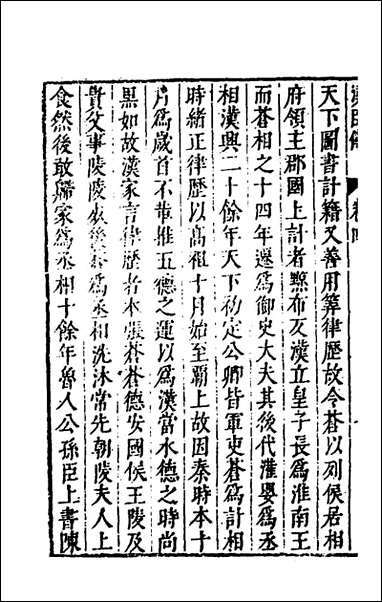 天下圖書計籍又善用算律歷故令蒼以列侯居相
府領主郡國上計者黥布反漢立皇子長爲淮南王
而蒼相之十四年遷爲御史大夫其後代灌嬰爲丞
相漢興二十餘年天下初定公卿皆軍吏蒼爲計相
時緒正律歷以高祖十月始至霸上故因秦時本十
月爲歲首不革推五德之運以爲漢當水德之時尚
黒如故漢家言律歷者本張蒼蒼德安國侯王陵及
貴父事陵陵死後蒼爲丞相洗沐常先朝陵夫人上
食然後敢歸家爲丞相十餘年魯人公孫臣上書陳